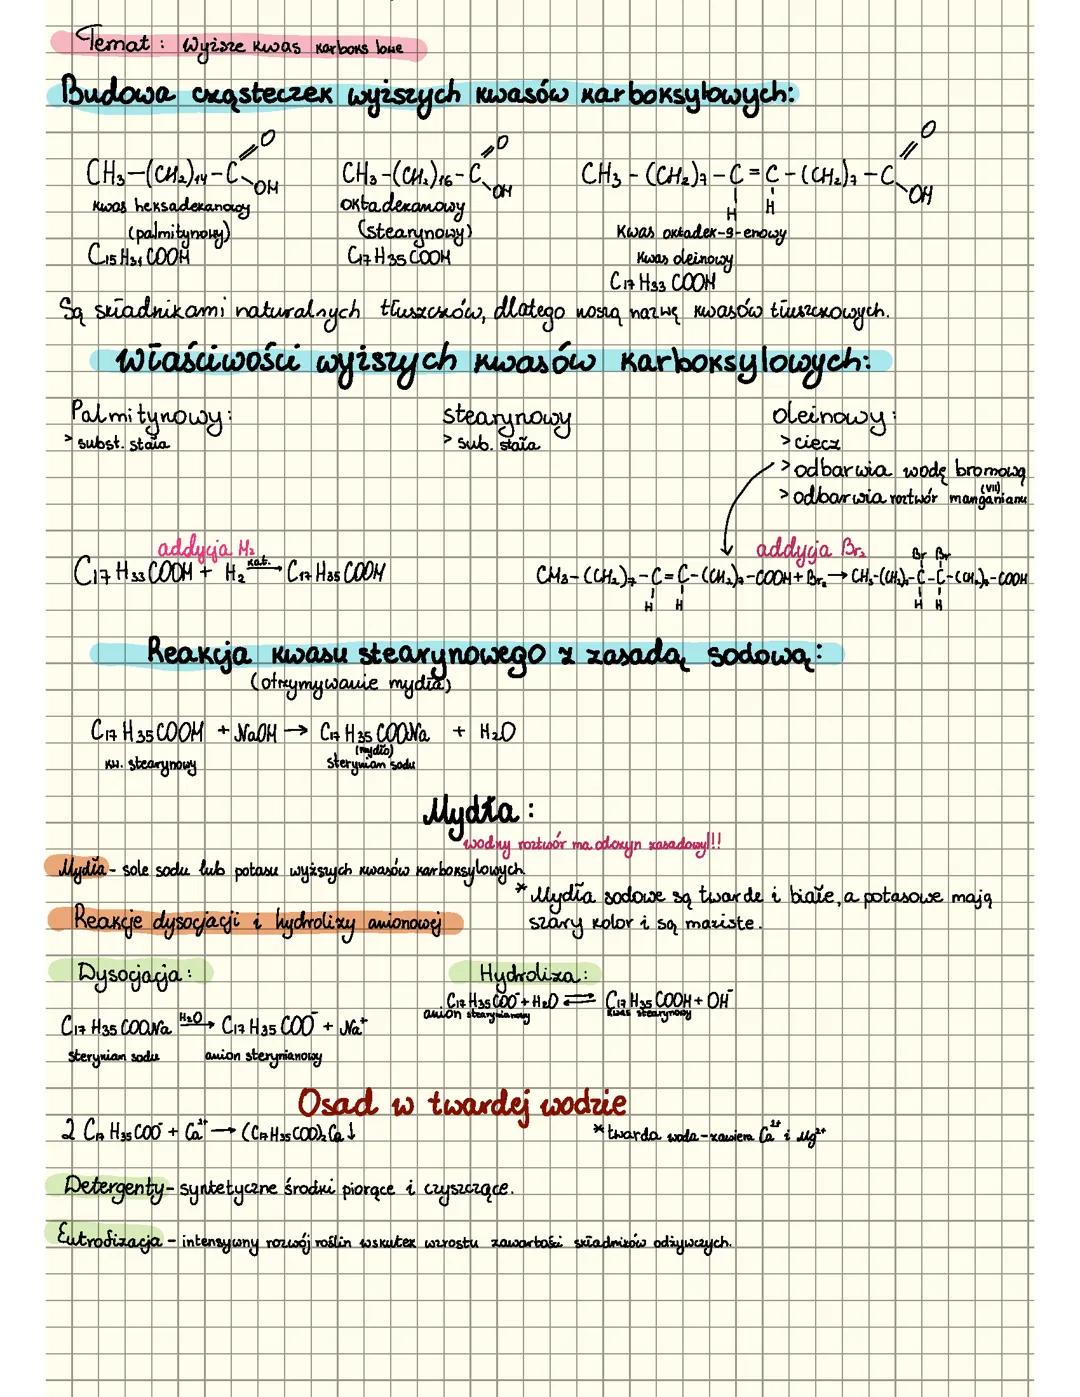 Temat: Wyższe kwas karboks lowe
Budowa cząsteczek wyższych kwasów karboksylowych:
CH₃-(CH₂)₁₄-C=O-OH
CH₃-(CH₂)₁₆-C=O-OH
CH₃-(CH₂)₇-C=C-(CH₂)₇-C=O-OH
H H
kwas heksadekanowy
(palmitynowy)
C₁₅H₃₁COOH
oktadekanowy
(stearynowy)
C₁₇H₃₅COOH
Kwas oktadek-9-enowy
Kwas oleinowy
C₁₇H₃₃COOH
Są składnikami naturalnych tłuszczów, dlatego noszą nazwę kwasów tłuszczowych.
Właściwości wyższych kwasów karboksylowych:
Palmitynowy:
> subst. stała
stearynowy
> sub. stała
oleinowy:
> ciecz
> odbarwia wodę bromową
> odbarwia roztwór manganianu (VII)
addycja H₂
C₁₇H₃₃COOH + H₂ kat.→ C₁₇H₃₅COOH
addycja Br₂
Br Br
CH₃-(CH₂)₇-C=C-(CH₂)₇-COOH + Br₂ → CH₃-(CH₂)₇-C-C-(CH₂)₇-COOH
H H H H
Reakcja kwasu stearynowego z zasadą sodową:
(otrzymywanie mydła)
C₁₇H₃₅COOH + NaOH → C₁₇H₃₅COONa + H₂O
(mydło)
kw. stearynowy
steryniam sodu
Mydła:
wodny roztwór ma odczyn zasadowy!!!
Mydła - sole sodu lub potasu wyższych kwasów karboksylowych
* Mydła sodowe są twarde i białe, a potasowe mają
szary kolor i są maziste.
Reakcje dysocjacji i hydrolizy anionowej
Dysocjacja:
C₁₇H₃₅COONa H₂O→ C₁₇H₃₅COO⁻ + Na⁺
steryniam sodu
anion sterynianowy
Hydroliza:
C₁₇H₃₅COO⁻ + H₂O ⇌ C₁₇H₃₅COOH + OH⁻
anion stearynianowy
kwas stearynowy
Osad w twardej wodzie
2 C₁₇H₃₅COO⁻ + Ca²⁺ → (C₁₇H₃₅COO)₂Ca↓
* twarda woda - zawiera Ca²⁺ i Mg²⁺
Detergenty - syntetyczne środki piorące i czyszczące.
Eutrofizacja - intensywny rozwój roślin wskutek wzrostu zawartości składników odżywczych.